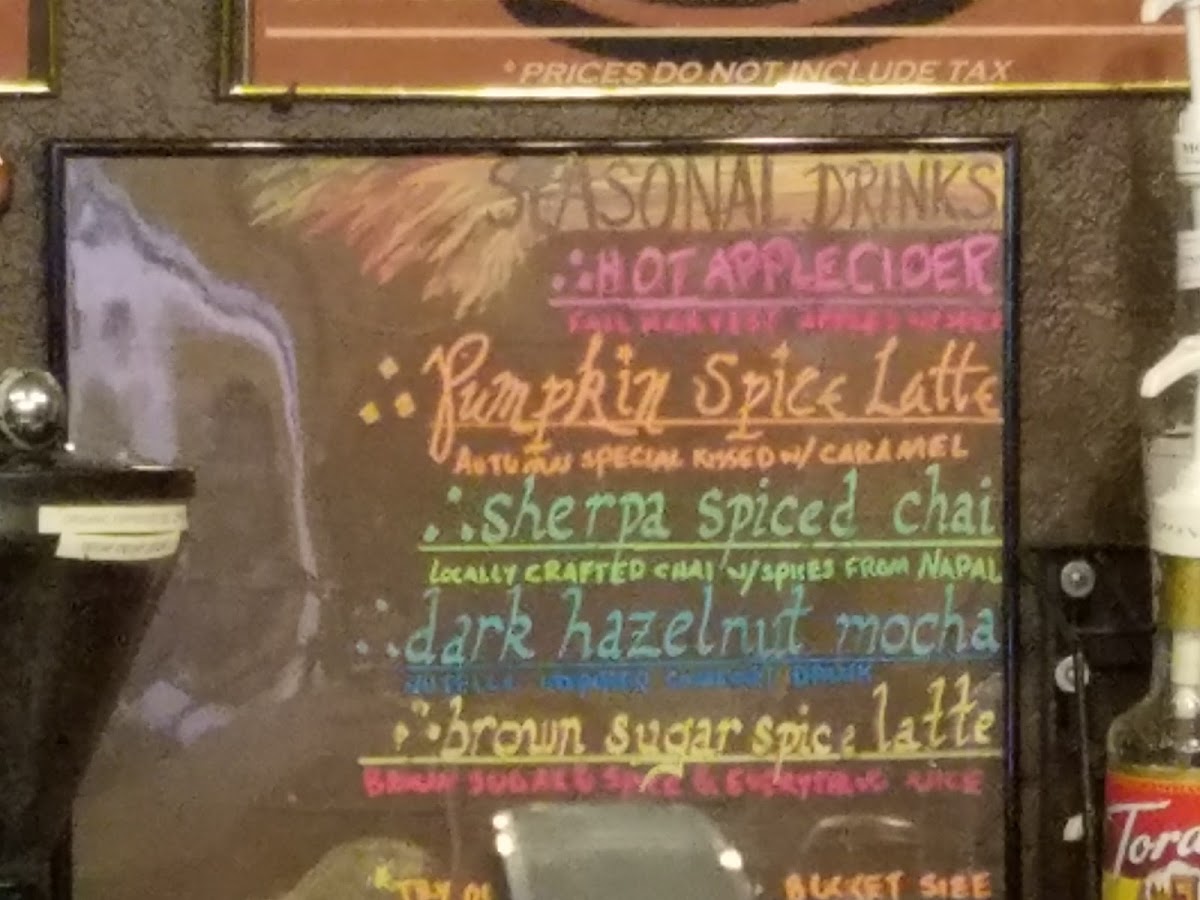 *PRICES DO NOT INCLUDE TAX
SEASONAL DRINKS
HOT APPLE CIDER
FALL HARVEST
Pumpkin Spice Latte
AUTUMN SPECIAL KISSED W/ CARAMEL
sherpa spiced chai
LOCALLY CRAFTED CHAI W/ SPICES FROM NAPAL
dark hazelnut mocha
NUTELLA INSPIRED COMFORT DRINK
brown sugar spice latte
BROWN SUGAR & SPICE & EVERYTHING NICE
*TRY
BUCKET SIZE
Tora